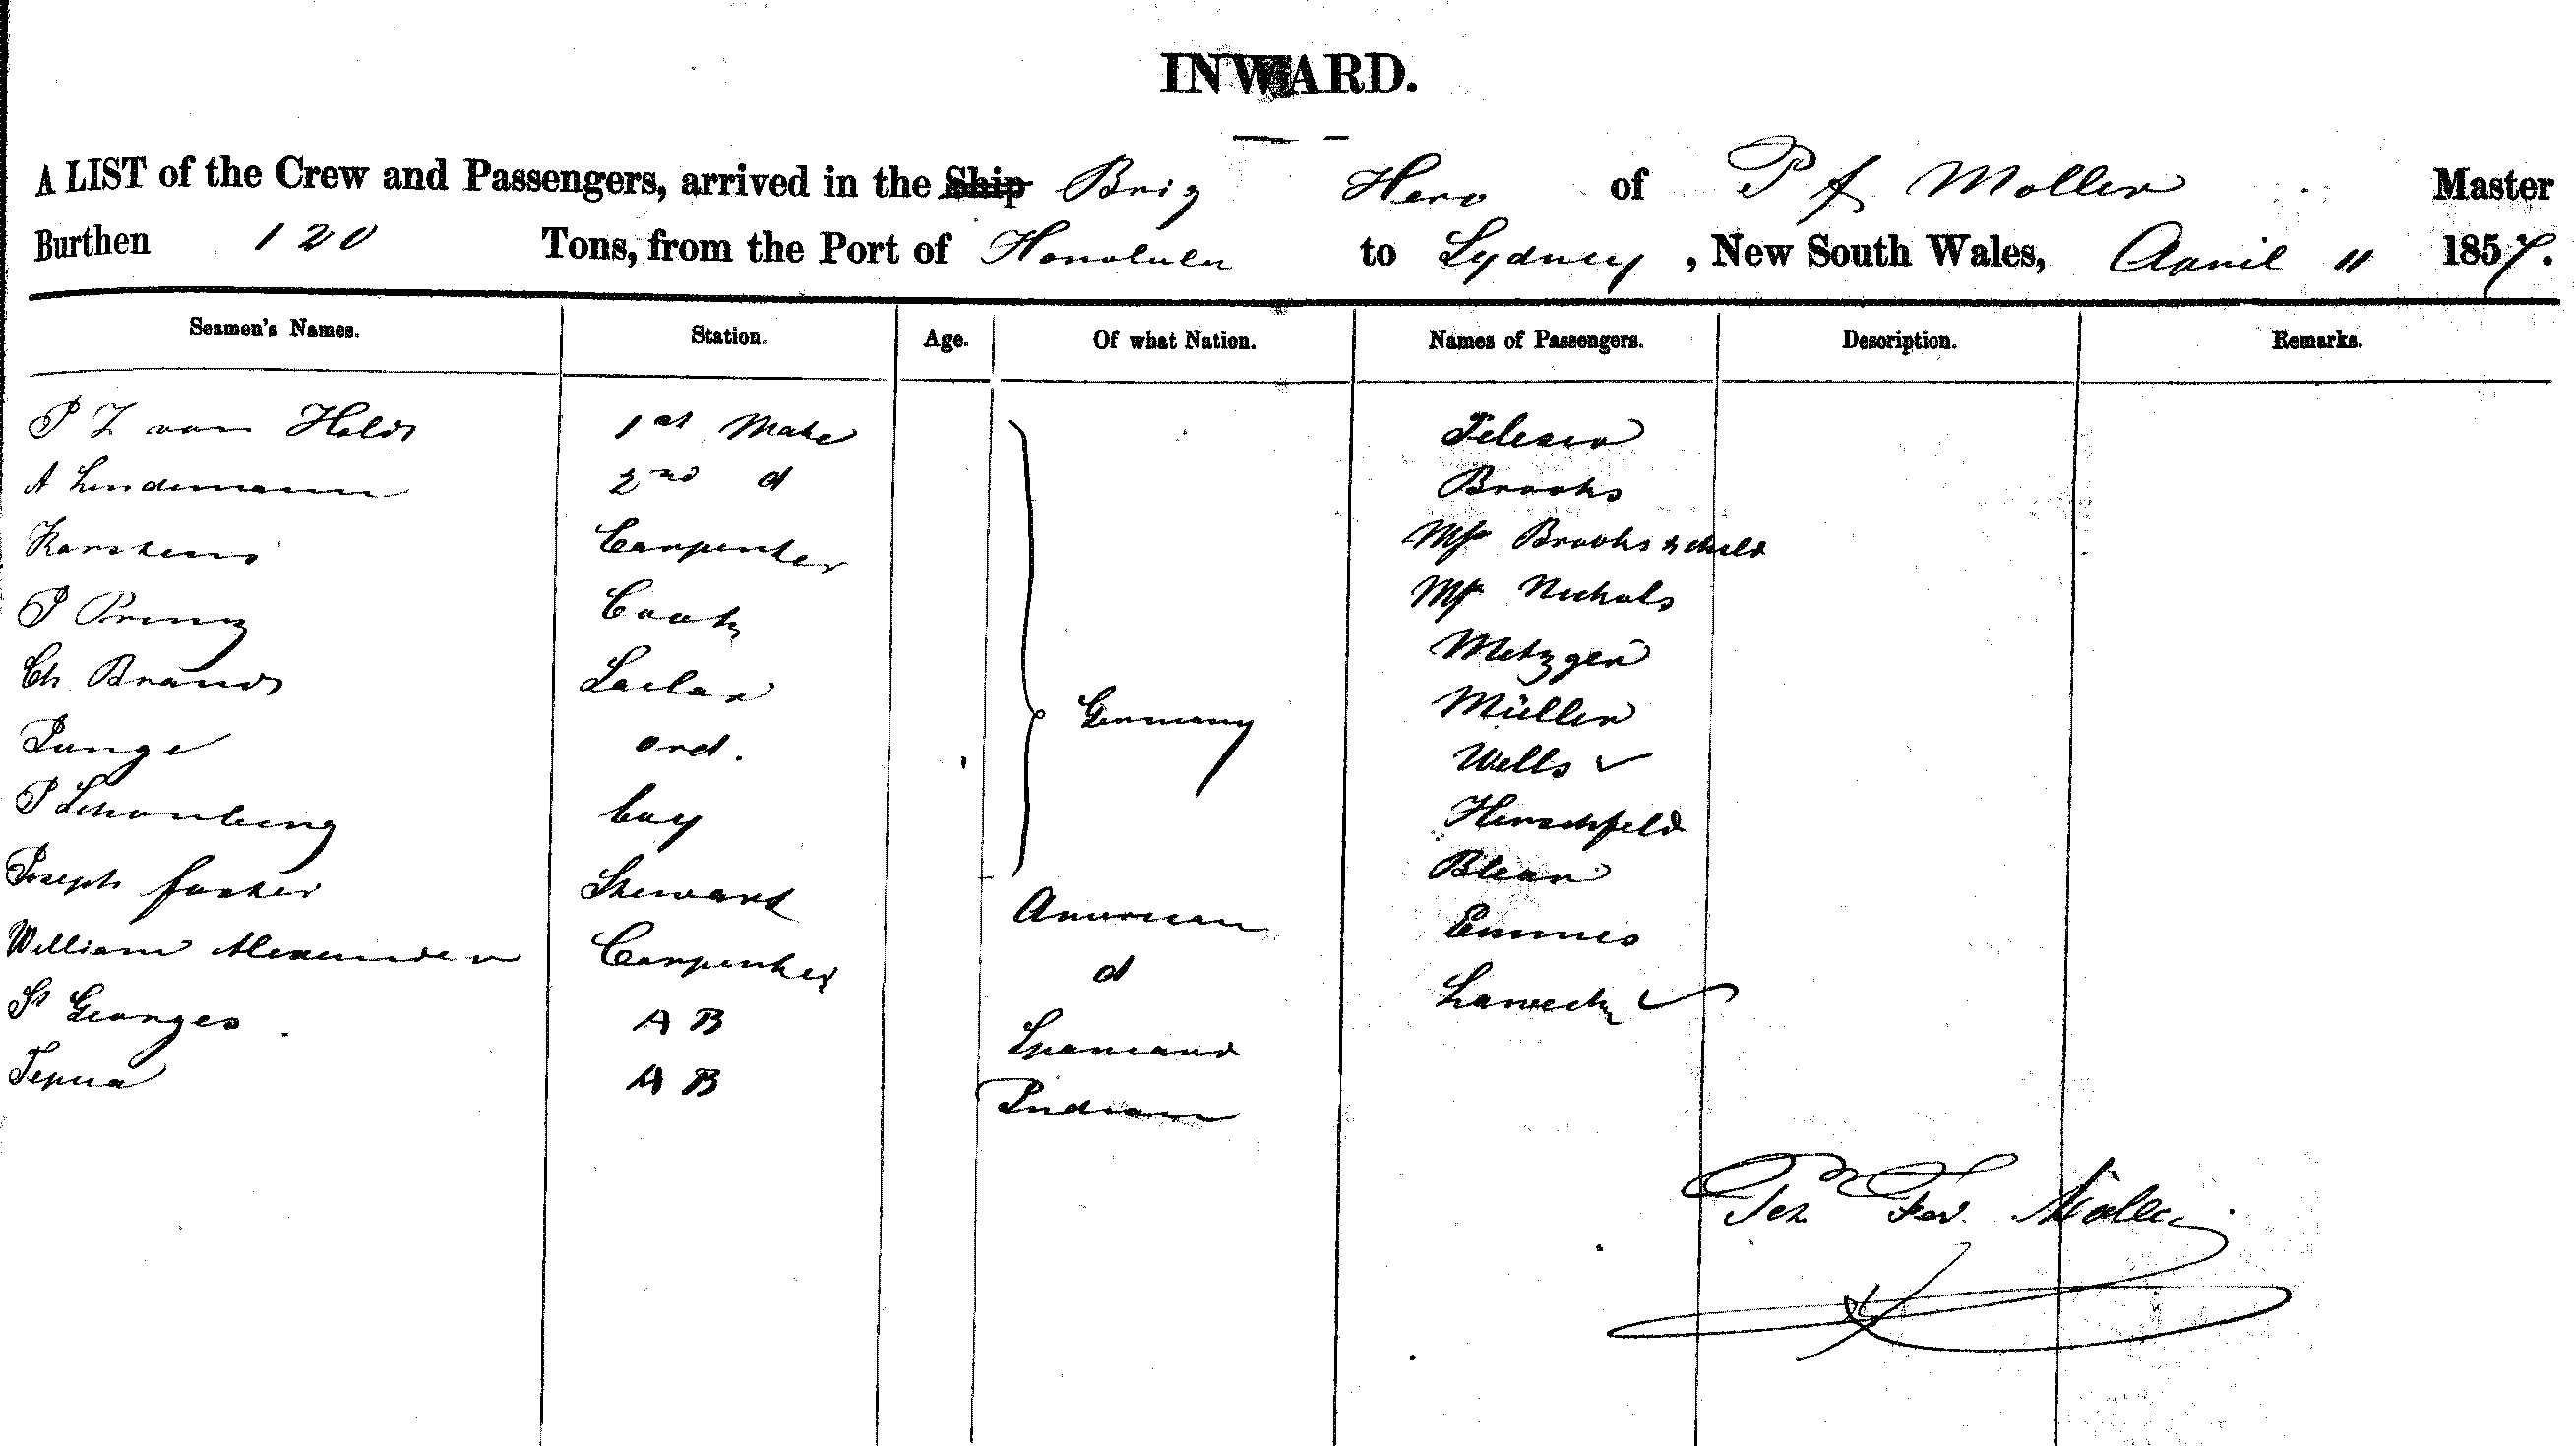 INWARD.
A LIST of the Crew and Passengers, arrived in the Ship Brig Hero of P f Moller Master
Burthen 120 Tons, from the Port of Honolulu to Sydney, New South Wales, April 11 1857.
Seamen's Names. Station. Age. Of what Nation. Names of Passengers. Description. Remarks.
P Z von Holdt 1st Mate
A Lindemann 2nd d Brooks
Karstens Carpenter Mrs Brooks & child
P Prinz Cook Mr Nichols
Ch Brandt Sailor Metzger
Junge ord. Germany Müller
P Schonberg boy Wells
Joseph foster Steward American Herschfeld
William Alexander Carpenter d
St Georges A B Spaniard
Tepua A B Indian